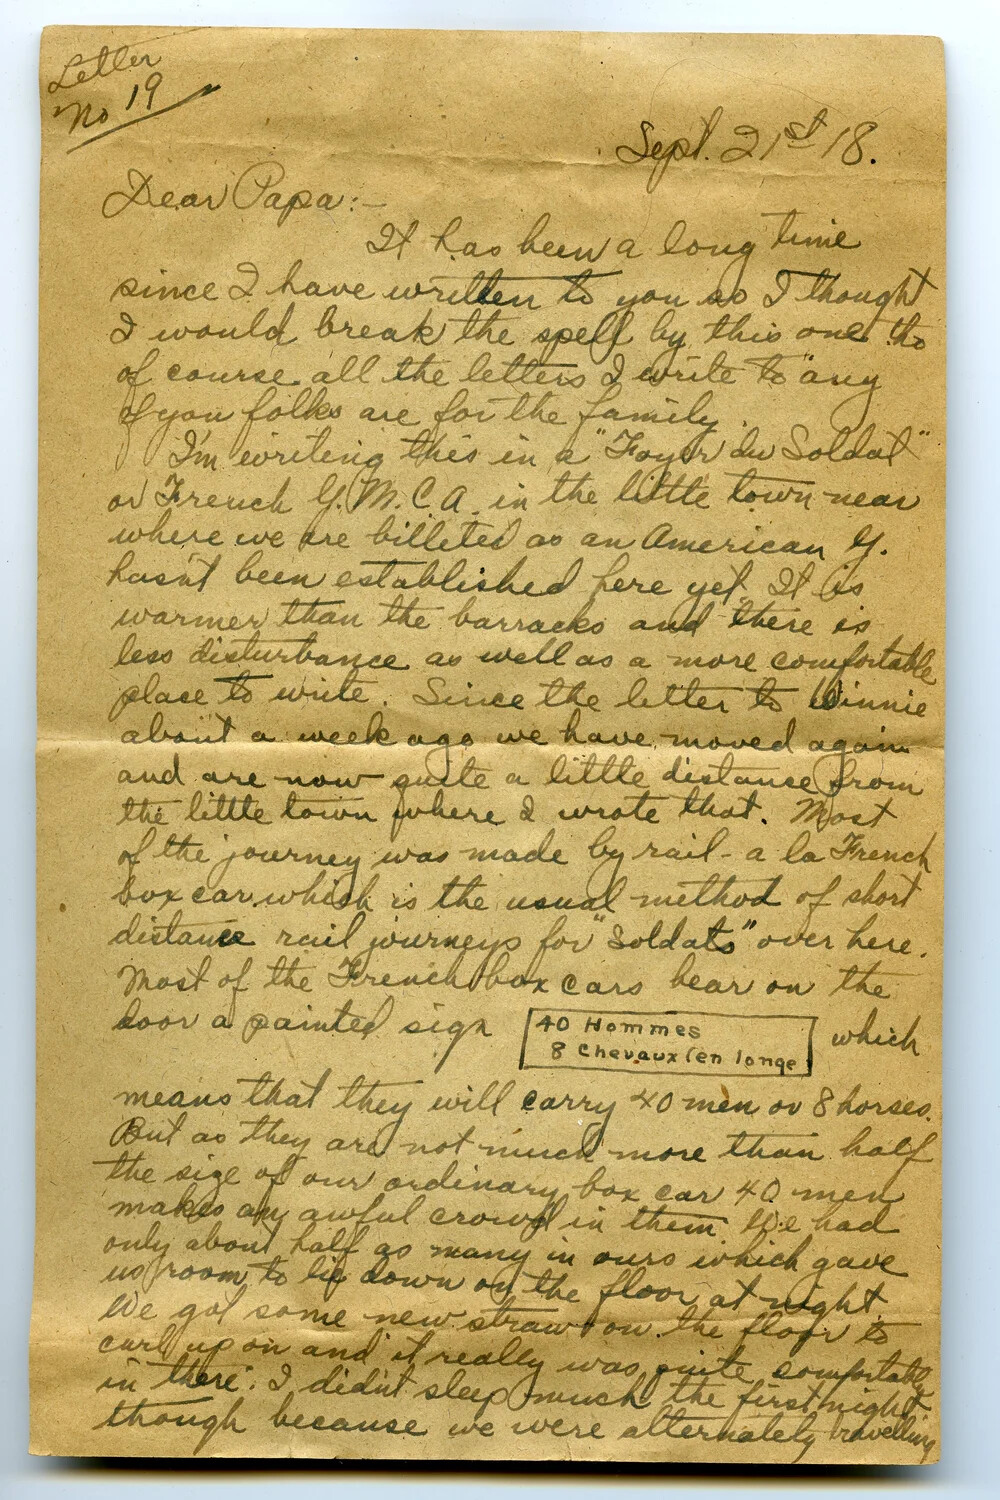 Letter
No 19
Sept. 21st 18.
Dear Papa:-
It has been a long time
since I have written to you so I thought
I would break the spell by this one tho
of course all the letters I write to any
of you folks are for the family.
I'm writing this in a "Foyer du Soldat"
or French Y.M.C.A. in the little town near
where we are billeted as an American Y.
hasn't been established here yet. It is
warmer than the barracks and there is
less disturbance as well as a more comfortable
place to write. Since the letter to Winnie
about a week ago we have moved again
and are now quite a little distance from
the little town where I wrote that. Most
of the journey was made by rail - a la French
box car which is the usual method of short
distance rail journeys for "Soldats" over here.
Most of the French box cars bear on the
door a painted sign 40 Hommes which
8 Chevaux (en longe)
means that they will carry 40 men or 8 horses.
But as they are not much more than half
the size of our ordinary box car 40 men
makes an awful crowd in them. We had
only about half as many in ours which gave
us room to lie down on the floor at night.
We got some new straw on the floor to
curl up on and it really was quite comfortable
in there. I didn't sleep much the first night
though because we were alternately travelling